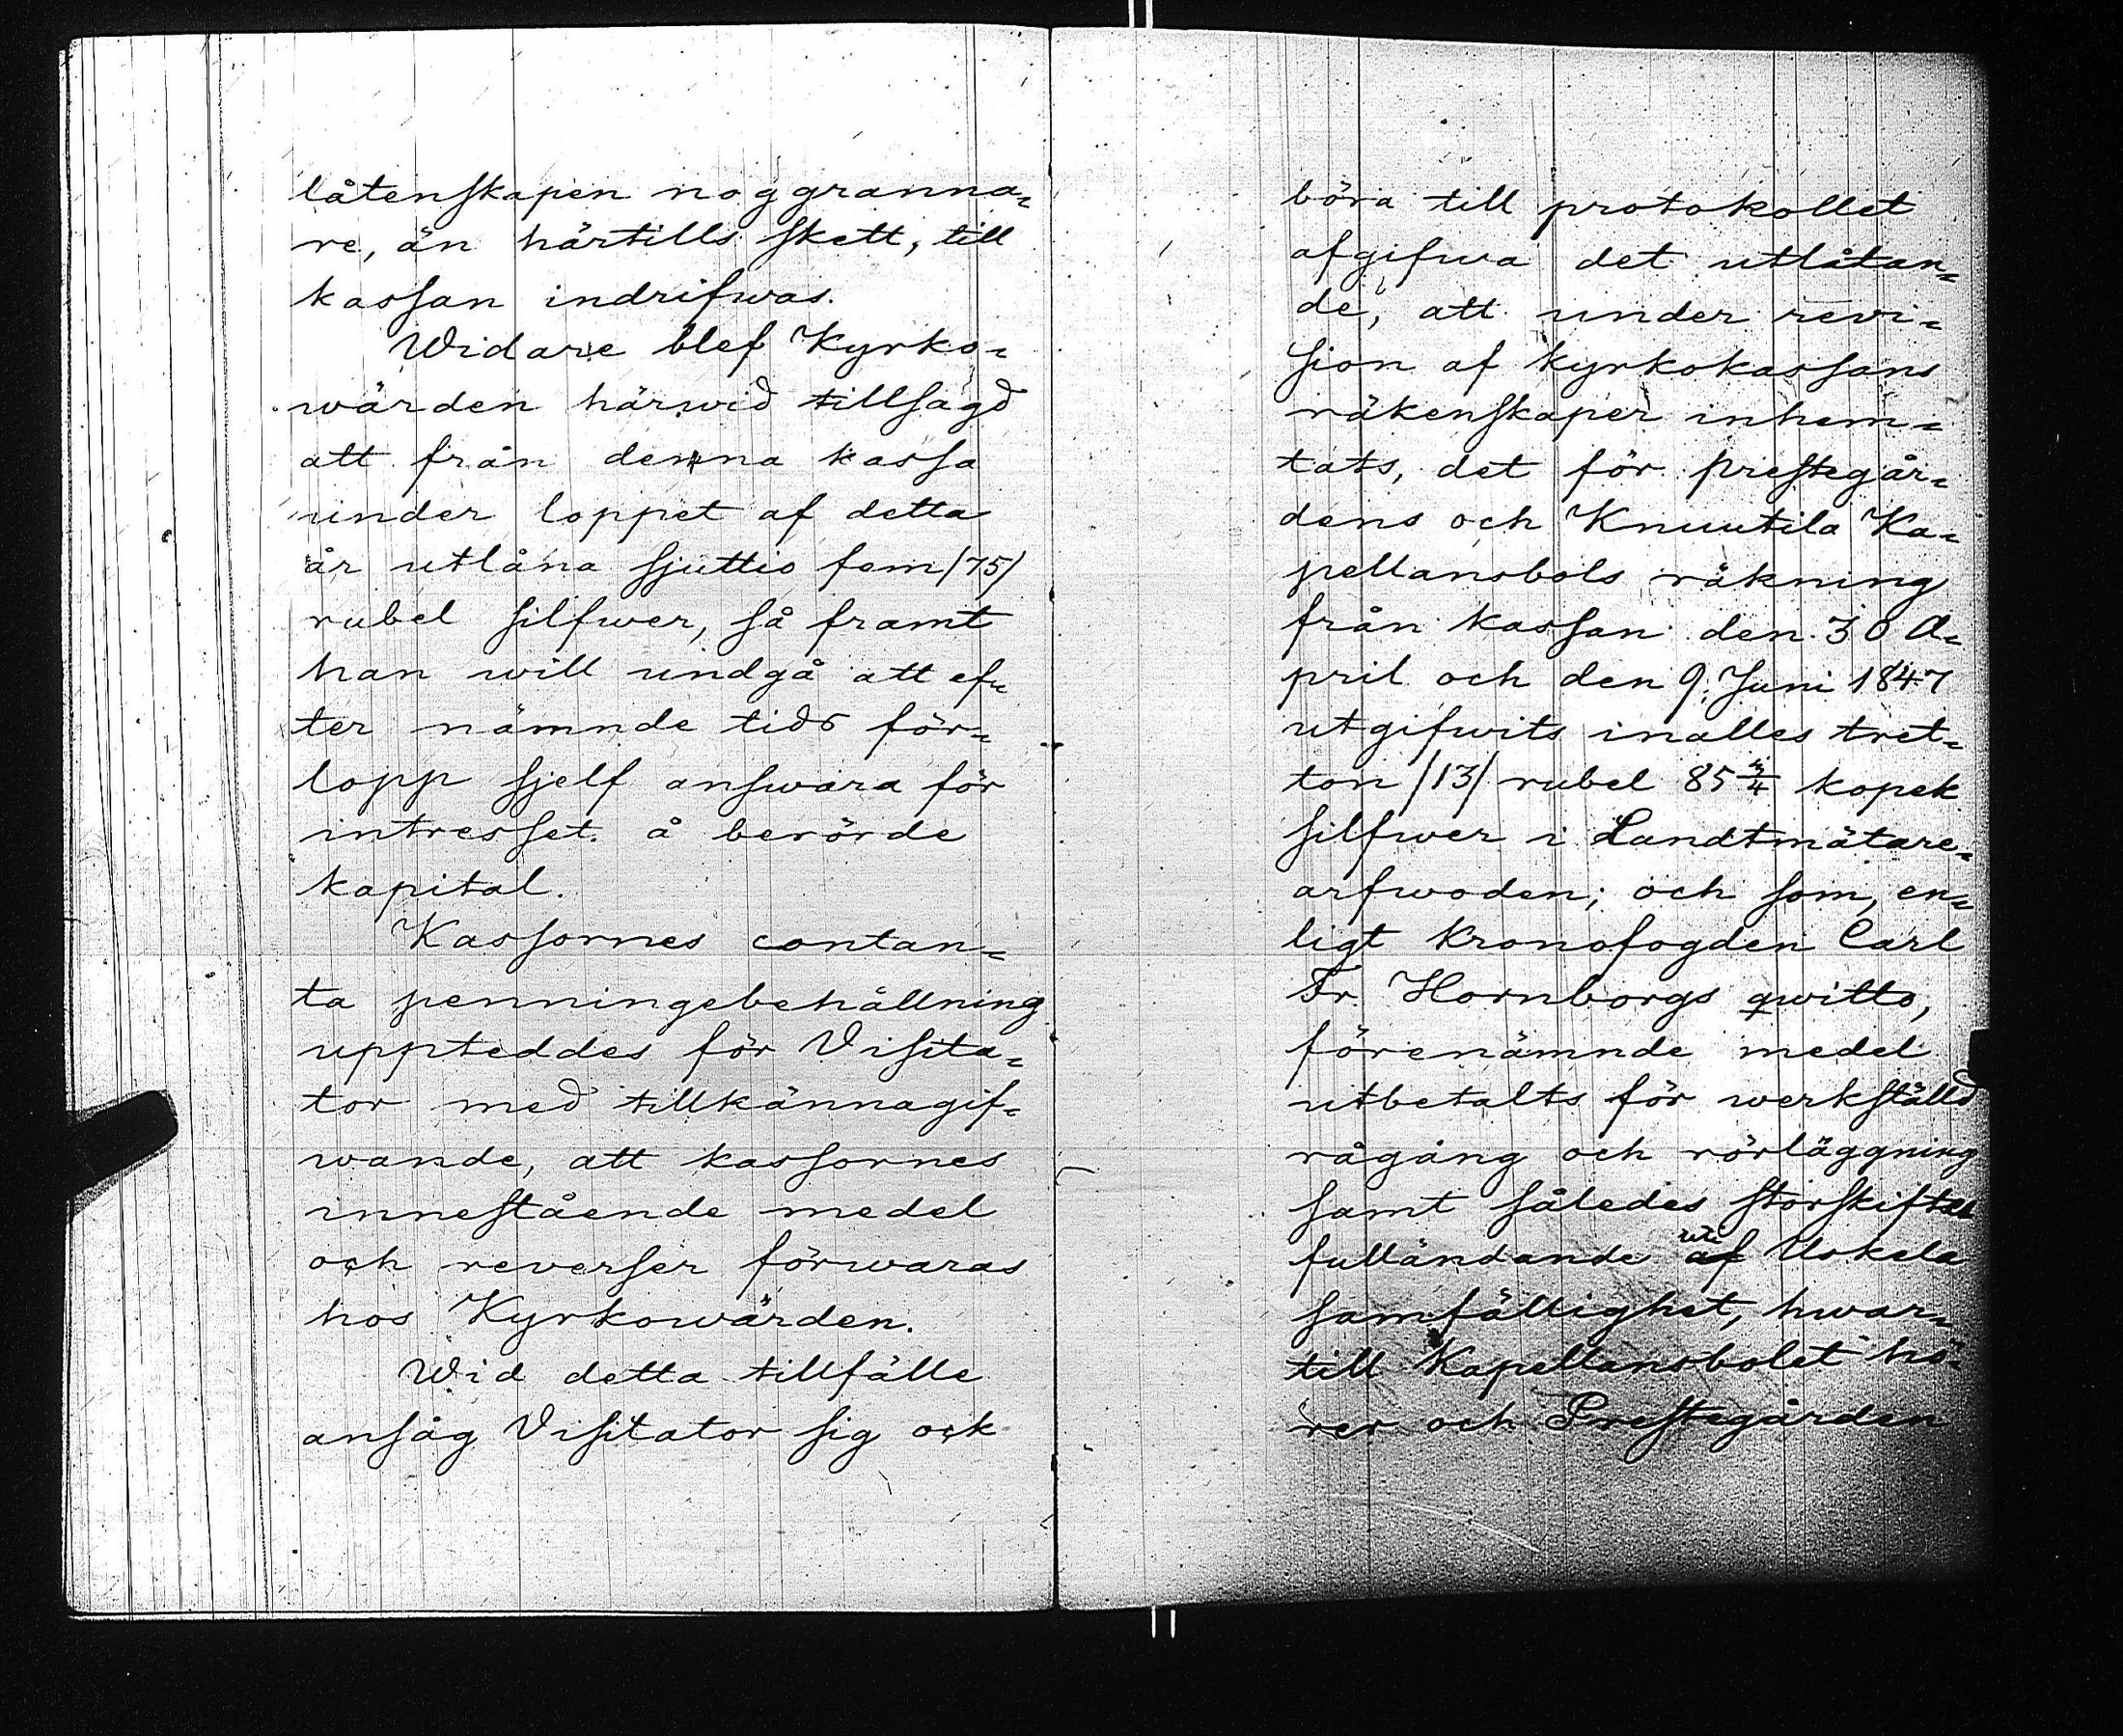 låtenskapen noggranna-
re, än härtills skett, till
kassan indrifwas.
Widare blef Kyrko-
wärden härwid tillsagd
att från denna kassa
under loppet af detta
år utlåna sjuttio fem /75/
rubel silfwer, så framt
han will undgå att ef-
ter nämnde tids för-
lopp sjelf answara för
intresset å berörde
kapital.
Kassornes contan-
ta penningebehållning
uppteddes för Visita-
tor med tillkännagif-
wande, att kassornes
innestående medel
och reverser förwaras
hos Kyrkowärden.
Wid detta tillfälle
ansåg Visitator sig ock
böra till protokollet
afgifwa det utlåtan-
de, att under revi-
sion af kyrkokassans
räkenskaper inhem-
tats, det för prestegår-
dens och Knuutila Ka-
pellansbols räkning
från kassan den 30 A-
pril och den 9 Juni 1847
utgifwits inalles tret-
ton /13/ rubel 85 3/4 kopek
silfwer i Landtmätare-
arfwoden; och som, en-
ligt Kronofogden Carl
Fr. Hornborgs qwitto,
förenämnde medel
utbetalts för werkställd
rågång och rörläggning
samt således storskiftets
fulländande uti af Uskela
samfällighet, hwar-
till Kapellansbolet hö-
rer och Prestegården